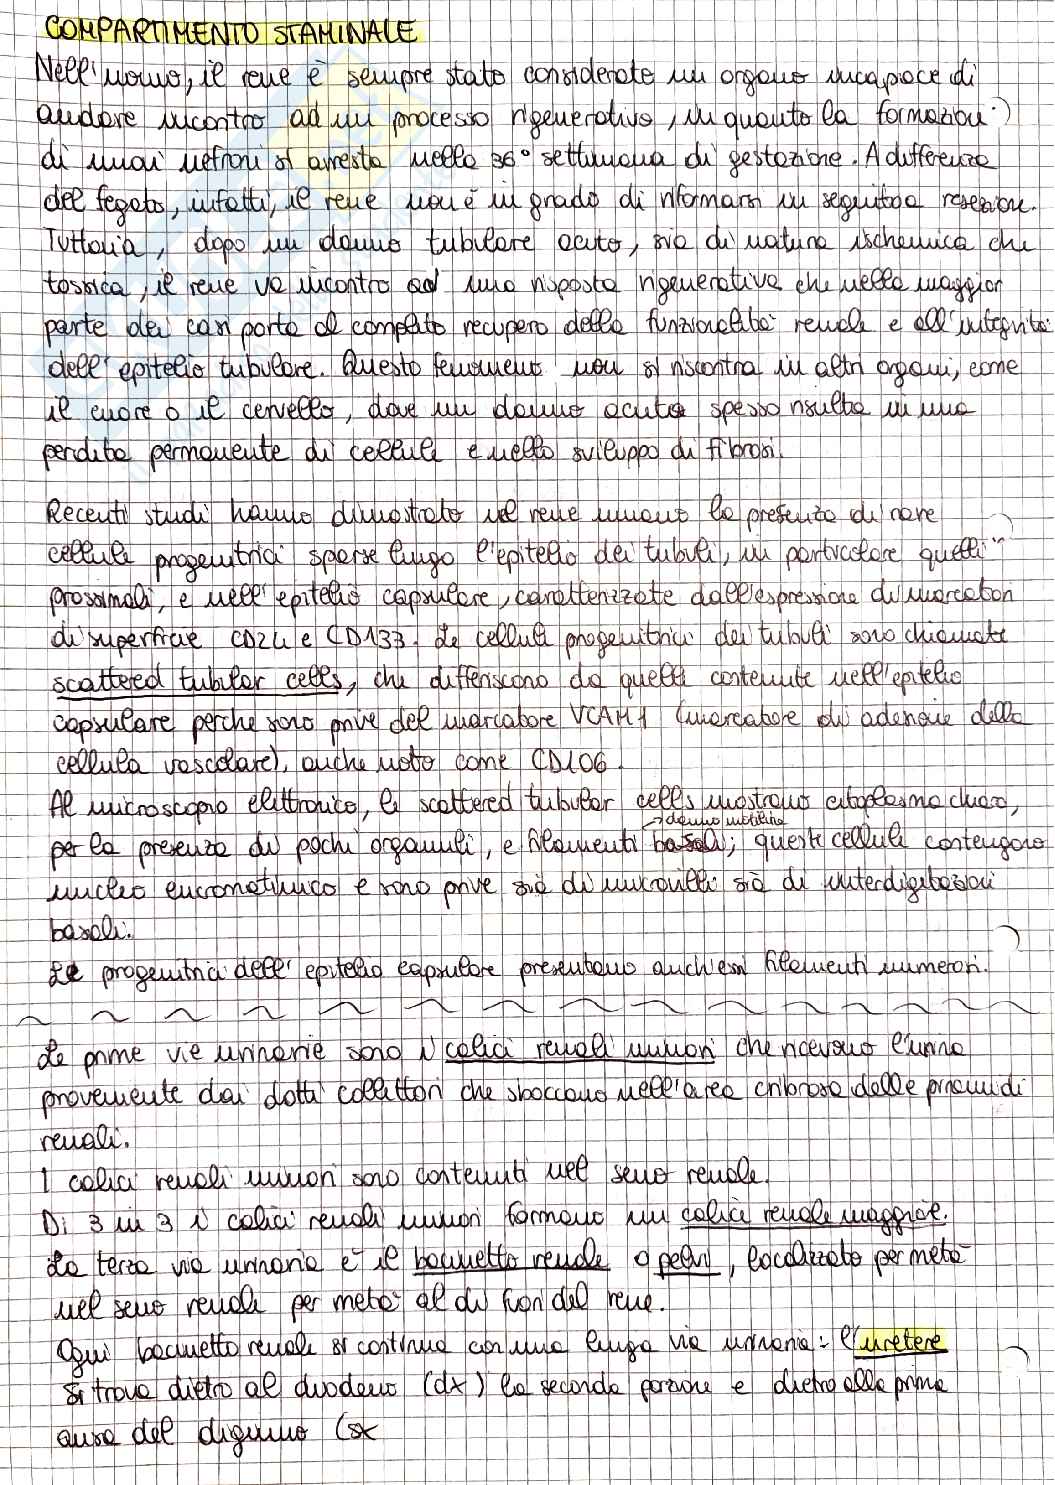 COMPARTIMENTO STAMINALE
Nell'uomo, il rene è sempre stato considerato un organo incapace di
andare incontro ad un processo rigenerativo, in quanto la formazione
di nuovi nefroni si arresta nella 36° settimana di gestazione. A differenza
del fegato, infatti, il rene non è in grado di riformarsi in seguito a resezione.
Tuttavia, dopo un danno tubulare acuto, sia di natura ischemica che
tossica, il rene va incontro ad una risposta rigenerativa che nella maggior
parte dei casi porta al completo recupero della funzionalità renale e all'integrità
dell'epitelio tubulare. Questo fenomeno non si riscontra in altri organi, come
il cuore o il cervello, dove un danno acuto spesso risulta in una
perdita permanente di cellule e nello sviluppo di fibrosi.
Recenti studi hanno dimostrato nel rene umano la presenza di rare
cellule progenitrici sparse lungo l'epitelio dei tubuli, in particolare quelli
prossimali, e nell'epitelio capsulare, caratterizzate dall'espressione di marcatori
di superficie CD24 e CD133. Le cellule progenitrici dei tubuli sono chiamate
scattered tubular cells, che differiscono da quelle contenute nell'epitelio
capsulare perche sono prive del marcatore VCAM1 (marcatore di adesione della
cellula vascolare), anche noto come CD106.
Al microscopio elettronico, le scattered tubular cells mostrano citoplasma chiaro,
→ danno motilità
per la presenza di pochi organuli, e filamenti basali; queste cellule contengono
nucleo eucromatinico e sono prive sia di microvilli sia di interdigitazioni
basali.
Le progenitrici dell'epitelio capsulare presentano anch'essi filamenti numerosi.
Le prime vie urinarie sono i calici renali minori che ricevono l'urina
proveniente dai dotti collettori che sboccano nell'area cribrosa delle piramidi
renali.
I calici renali minori sono contenuti nel seno renale.
Di 3 in 3 i calici renali minori formano un calice renale maggiore.
La terza via urinaria è il bacinetto renale o pelvi, localizzato per metà
nel seno renale per metà al di fuori del rene.
Ogni bacinetto renale si continua con una lunga via urinaria: l'uretere
si trova dietro al duodeno (dx) la seconda porzione e dietro alla prima
ansa del digiuno (sx